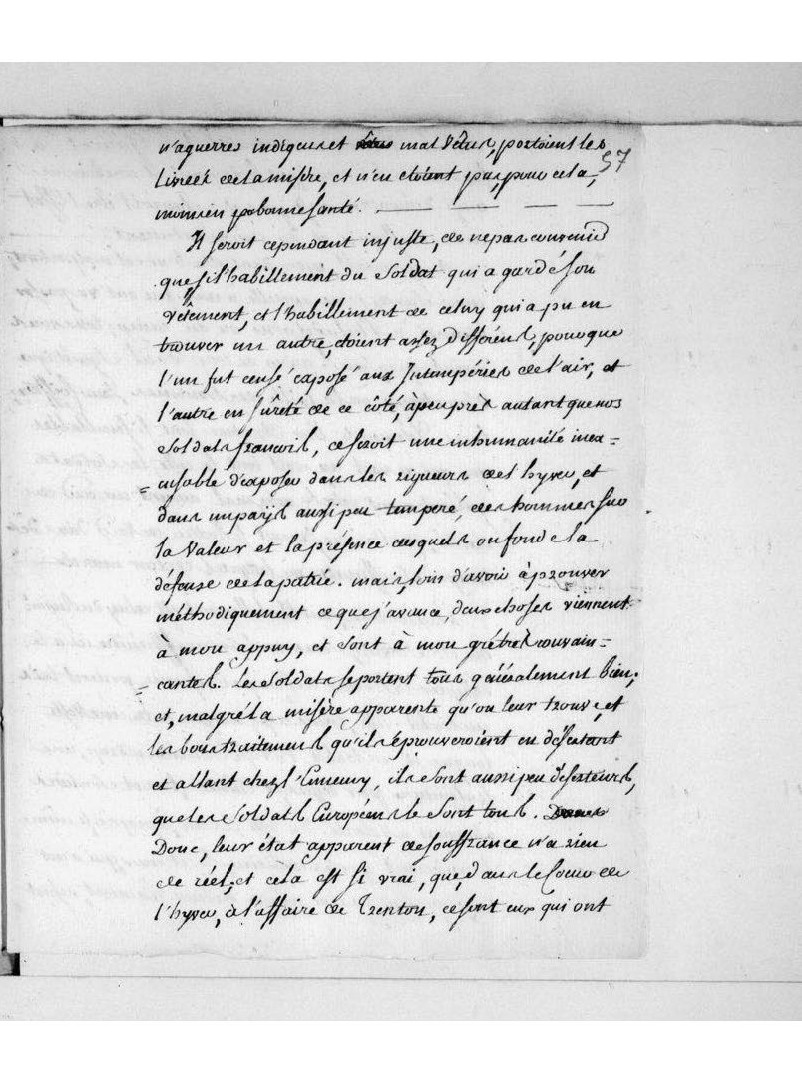 n'aguerres indigens et mal vêtus, portoient les
57
Livrées de la misère, et n'en étoient pas, pour cela,
moins en pas bonne santé.
Il seroit cependant injuste, de ne pas convenir
que si l'habillement du Soldat qui a gardé son
vêtement, et l'habillement de celuy qui a pu en
trouver un autre, étoient assez différens, pour que
l'un fut censé exposé aux Intempéries de l'air, et
l'autre en sûreté de ce côté, à peu près autant que nos
Soldats francois, ce seroit une inhumanité inex=
=cusable d'exposer dans les rigueurs de l'hyver, et
dans un païs aussi peu temperé, des hommes sur
la Valeur et la présence desquels on fonde la
défense de la patrie. mais, loin d'avoir à prouver
méthodiquement ce que j'avance, deux choses viennent
à mon appuy, et sont à mon gré très convain=
=cantes. Les Soldats se portent tous généralement bien;
et, malgré la misère apparente qu'on leur trouve, et
les bons traitemens qu'ils éprouveroient en désertant
et allant chez l'Ennemy, ils sont aussi peu déserteurs,
que les Soldats Européens le sont tous.
Donc, leur état apparent de souffrance n'a rien
de réel; et cela est si vrai, que, dans le Cours de
l'hyver, à l'affaire de Trenton, ce sont eux qui ont